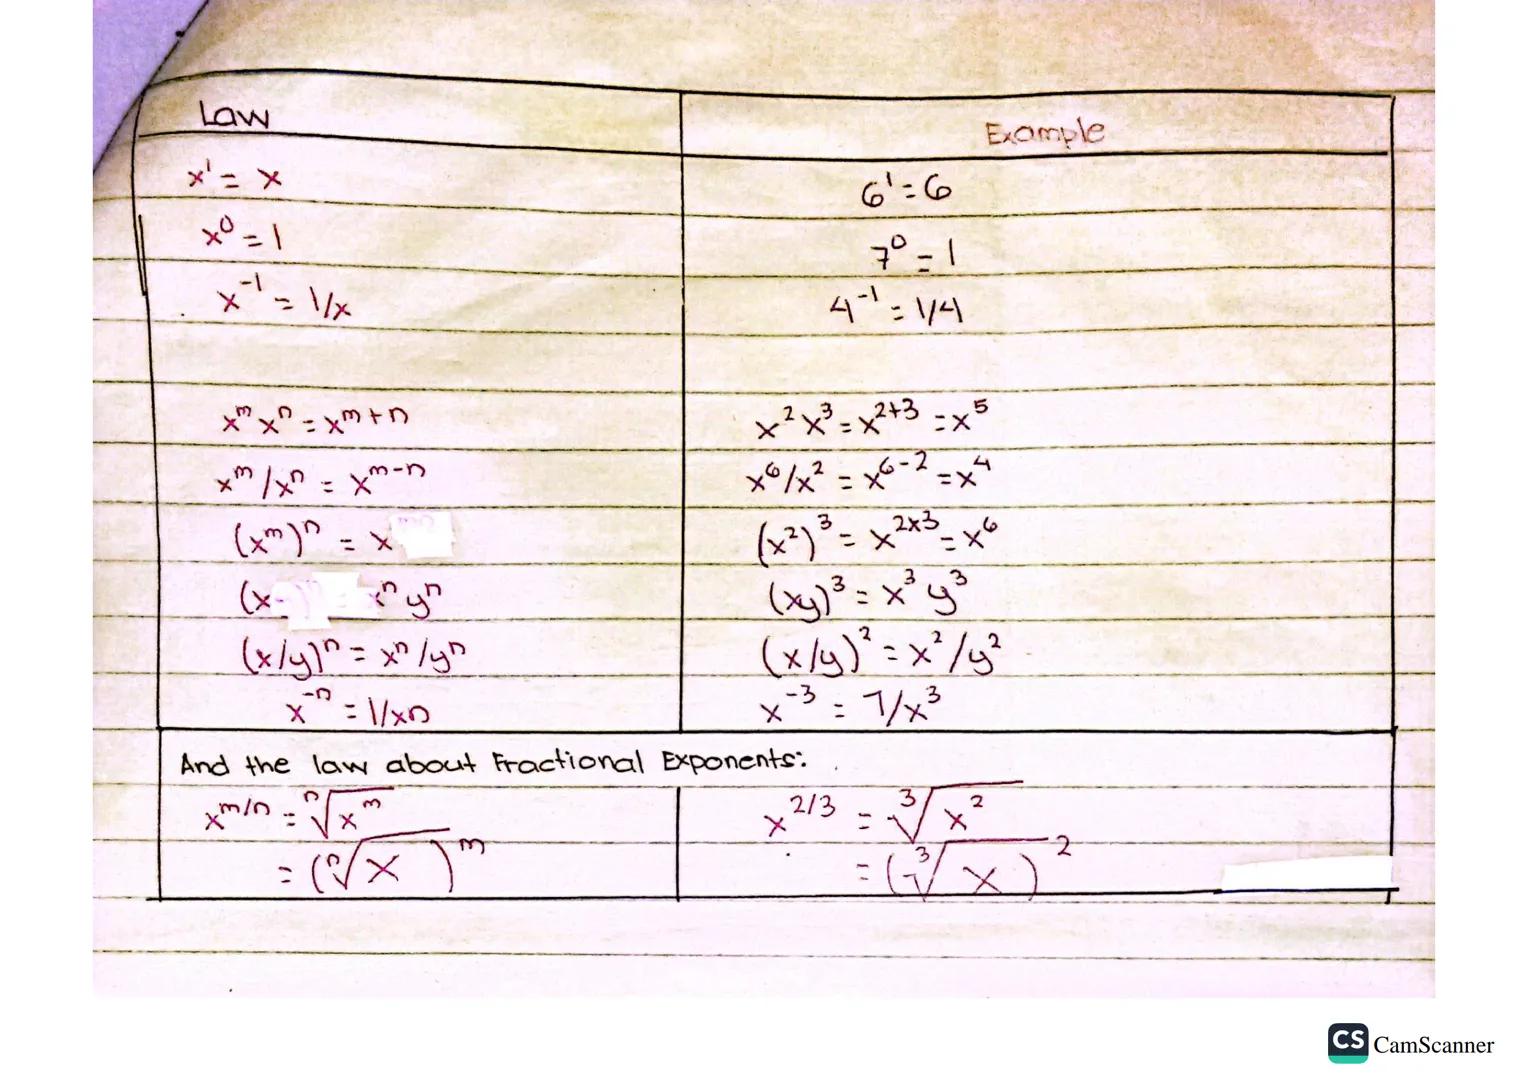 Law Example
x¹ = x 6¹ = 6
x⁰ = 1 7⁰ = 1
x⁻¹ = 1/x 4⁻¹ = 1/4
xᵐ xⁿ = xᵐ⁺ⁿ x² x³ = x²⁺³ = x⁵
xᵐ/xⁿ = xᵐ⁻ⁿ x⁶/x² = x⁶⁻² = x⁴
(xᵐ)ⁿ = x (x²)³ = x²ˣ³ = x⁶
(x )ⁿ = xⁿ yⁿ (xy)³ = x³ y³
(x/y)ⁿ = xⁿ/yⁿ (x/y)² = x²/y²
x⁻ⁿ = 1/xn x⁻³ = 7/x³
And the law about Fractional Exponents:
x^m/n = ⁿ√xᵐ x^2/3 = ³√x²
= (ⁿ√x)ᵐ = (³√x)²
CS CamScanner